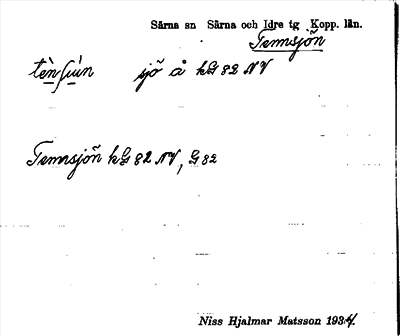 Särna sn Särna och Idre tg Kopp. län.
Tennsjön
tèn ʃu̇n sjö å kG 82 NV
Tennsjön kG 82 NV, G 82
Niss Hjalmar Matsson 1934.